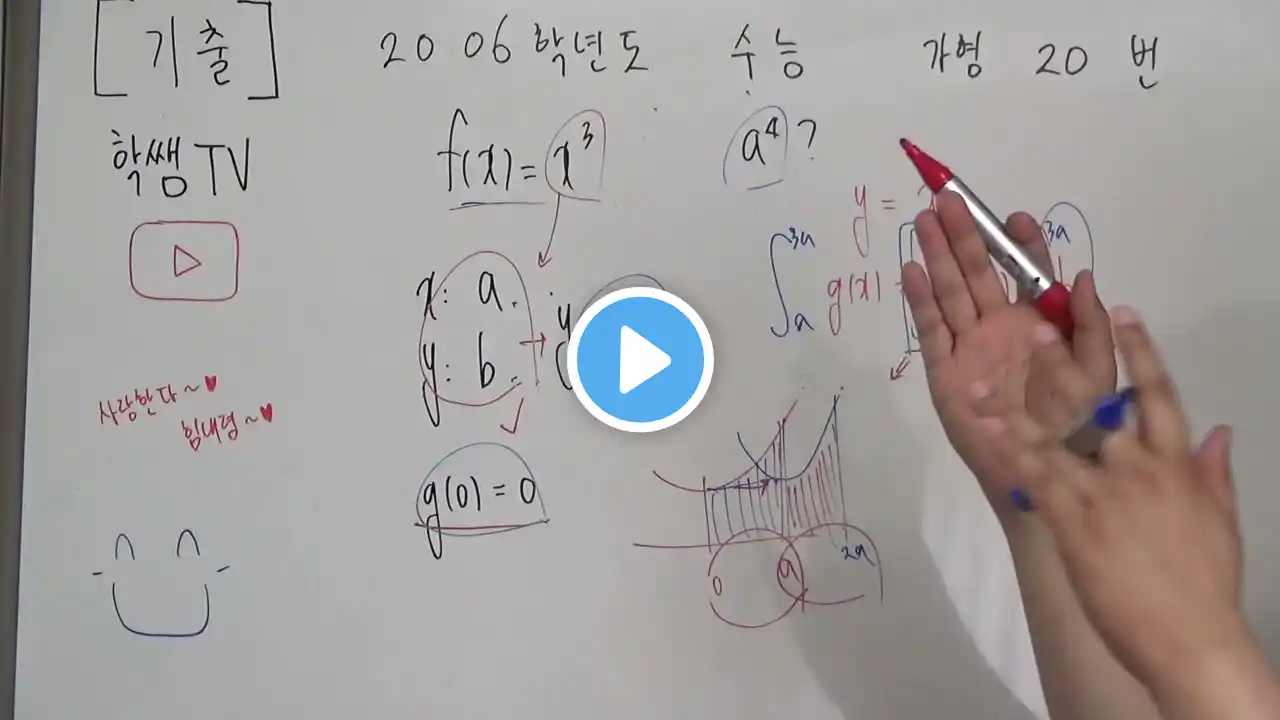 [기출] 2006학년도 수능 가형 20번
학쌤TV
f(x) = x³
a⁴?
y =
x: a.
y: b.
y
∫ₐ³ᵃ g(x)
3a
사랑한다~♥
힘내렴~♥
g(0) = 0
0 a 2a